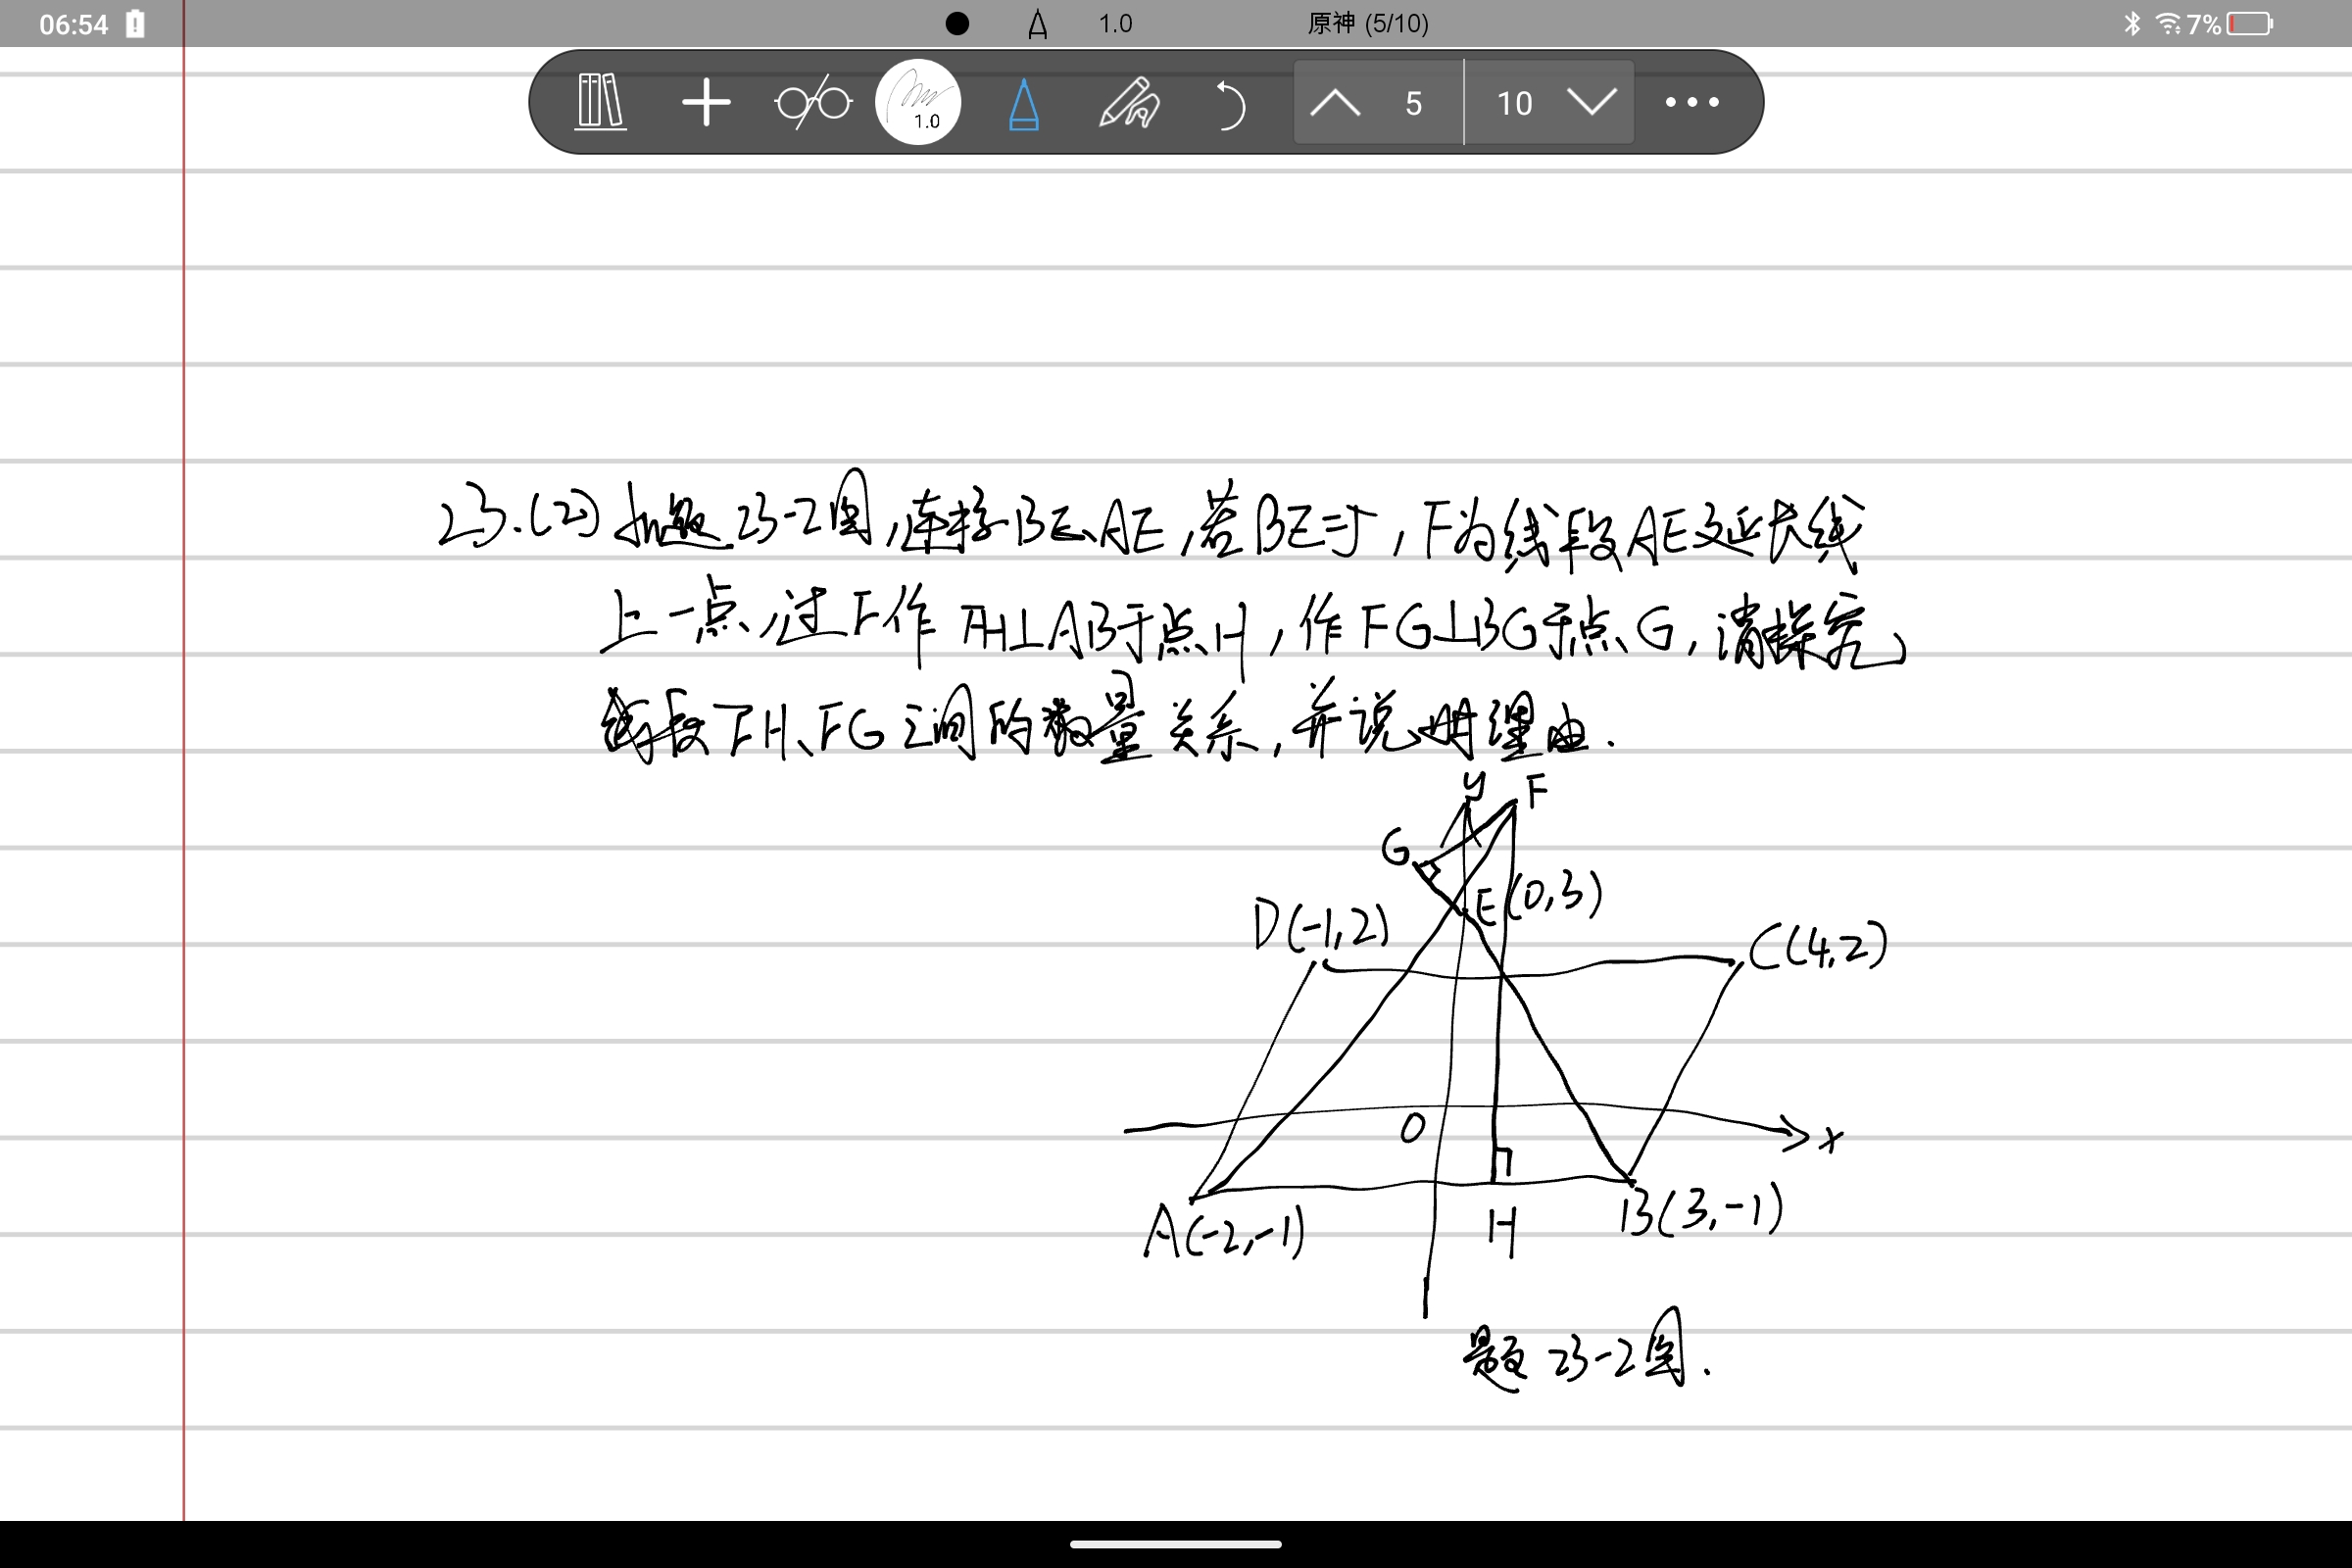 06:54
1.0
原神 (5/10)
7%
1.0
5
10
23.(2) 如题23-2图,连接BE、AE,若BE=5,F为线段AE延长线
上一点,过F作FH⊥AB于点H,作FG⊥BG于点G,请探究
线段FH、FG之间的数量关系,并说明理由.
y
F
G
E(0,3)
D(-1,2)
C(4,2)
O
x
A(-2,-1)
H
B(3,-1)
题23-2图.